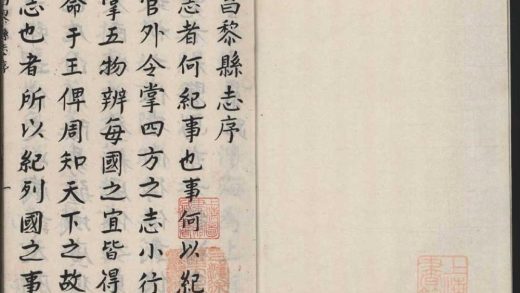 昌黎縣志序
志者何紀事也事何以紀
官外令掌四方之志小行
掌五物辨每國之宜皆得
命于王俾周知天下之故
志也者所以紀列國之事
昌黎縣志序
一